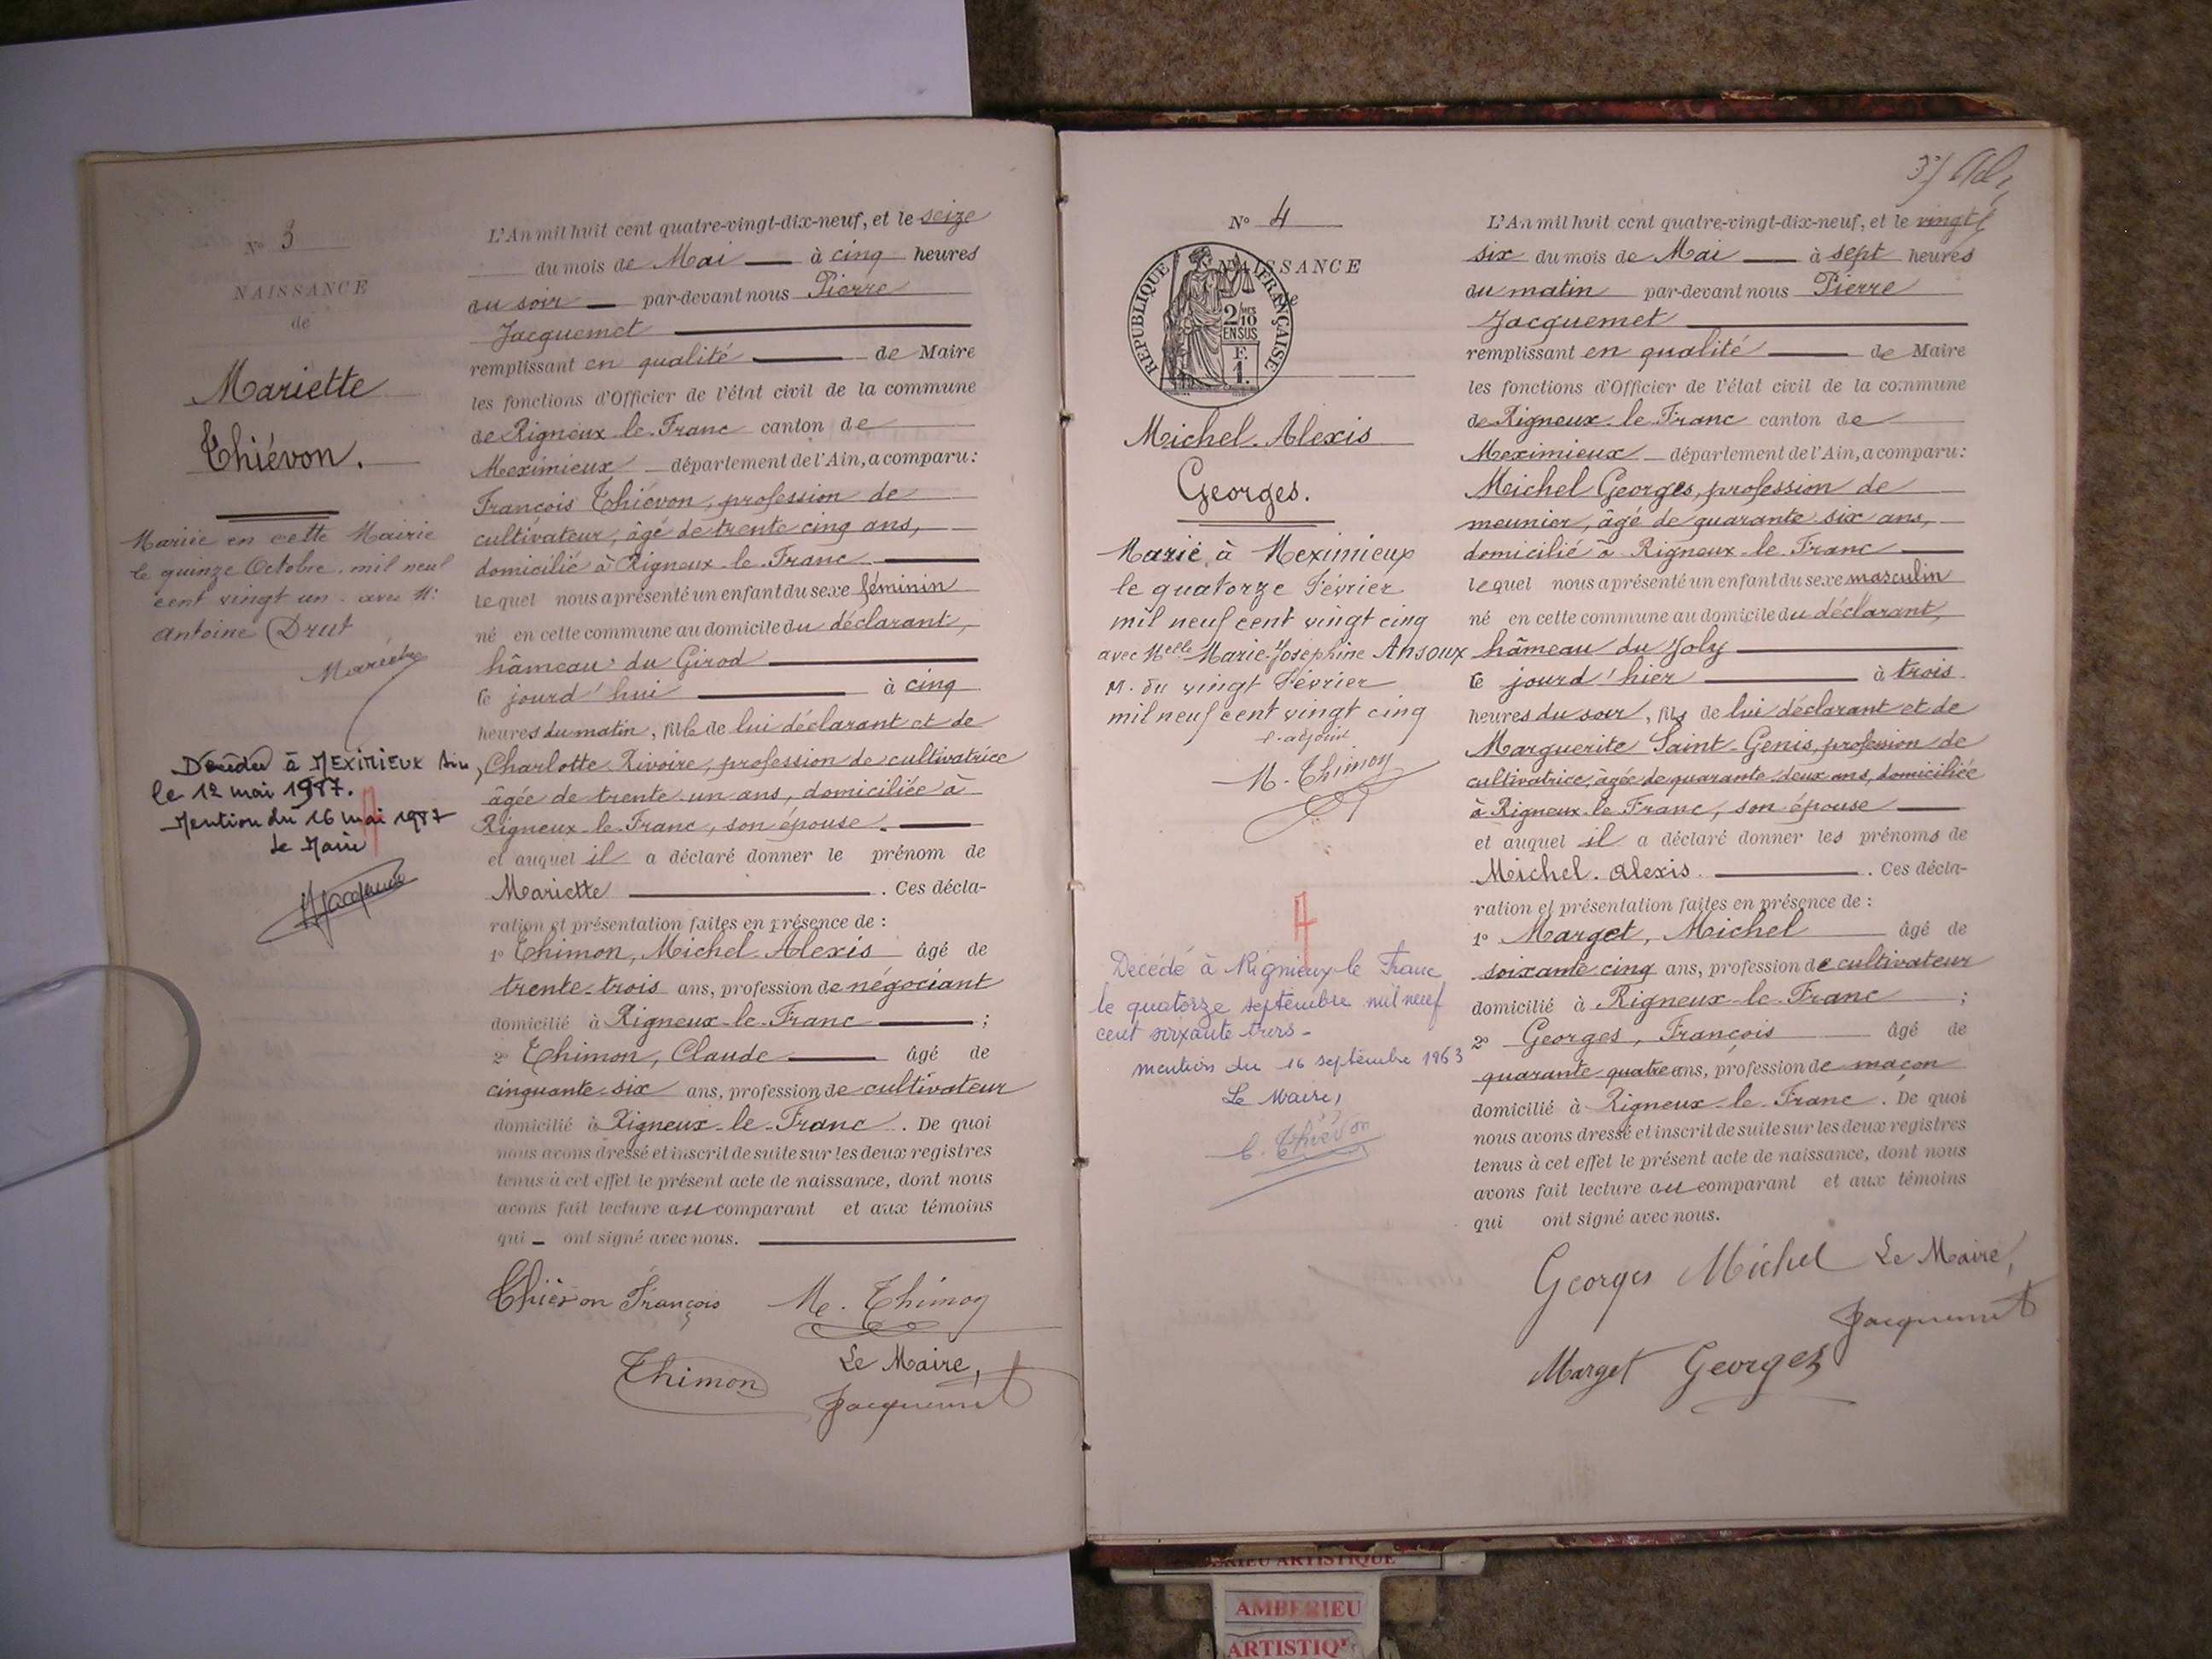 N° 3
NAISSANCE
de
Mariette
Thiévon.
Mariée en cette Mairie
le quinze Octobre mil neuf
cent vingt un avec M.
Antoine Drut
Décédée à MEXIMIEUX Ain,
le 12 mai 1987.
Mention du 16 mai 1987
Le Maire
L'An mil huit cent quatre-vingt-dix-neuf, et le seize
du mois de Mai à cinq heures
du soir par-devant nous Pierre
Jacquemet
remplissant en qualité de Maire
les fonctions d'Officier de l'état civil de la commune
de Rigneux-le-Franc canton de
Meximieux département de l'Ain, a comparu:
François Thiévon, profession de
cultivateur, âgé de trente cinq ans,
domicilié à Rigneux-le-Franc
lequel nous a présenté un enfant du sexe féminin
né en cette commune au domicile du déclarant,
hâmeau du Girod
le jourd'hui à cinq
heures du matin, fille de lui déclarant et de
Charlotte Rivoire, profession de cultivatrice
âgée de trente un ans, domiciliée à
Rigneux-le-Franc, son épouse.
et auquel il a déclaré donner le prénom de
Mariette. Ces décla-
ration et présentation faites en présence de :
1° Thimon, Michel-Alexis âgé de
trente-trois ans, profession de négociant
domicilié à Rigneux-le-Franc ;
2° Thimon, Claude âgé de
cinquante-six ans, profession de cultivateur
domicilié à Rigneux-le-Franc. De quoi
nous avons dressé et inscrit de suite sur les deux registres
tenus à cet effet le présent acte de naissance, dont nous
avons fait lecture au comparant et aux témoins
qui ont signé avec nous.
Thiévon François M. Thimon
Thimon Le Maire,
Jacquemet
N° 4
NAISSANCE
de
REPUBLIQUE FRANÇAISE
2/10
EN SUS
F.
1.
Michel-Alexis
Georges.
Marié à Meximieux
le quatorze Février
mil neuf cent vingt cinq
avec Melle Marie-Josephine Ansoux
M. du vingt Février
mil neuf cent vingt cinq
l'adjoint
M. Thimon
Décédé à Rignieux-le Franc
le quatorze septembre mil neuf
cent soixante trois-
mention du 16 septembre 1963
Le Maire,
C. Thiévon
L'An mil huit cent quatre-vingt-dix-neuf, et le vingt
six du mois de Mai à sept heures
du matin par-devant nous Pierre
Jacquemet
remplissant en qualité de Maire
les fonctions d'Officier de l'état civil de la commune
de Rigneux-le-Franc canton de
Meximieux département de l'Ain, a comparu:
Michel Georges, profession de
meunier, âgé de quarante-six ans,
domicilié à Rigneux-le-Franc
lequel nous a présenté un enfant du sexe masculin
né en cette commune au domicile du déclarant,
hâmeau du Joly
le jourd'hier à trois
heures du soir, fils de lui déclarant et de
Marguerite Saint-Genis, profession de
cultivatrice, âgée de quarante deux ans, domiciliée
à Rigneux-le-Franc, son épouse
et auquel il a déclaré donner les prénoms de
Michel-Alexis. Ces décla-
ration et présentation faites en présence de :
1° Marget, Michel âgé de
soixante cinq ans, profession de cultivateur
domicilié à Rigneux-le-Franc ;
2° Georges, François âgé de
quarante-quatre ans, profession de maçon
domicilié à Rigneux-le-Franc. De quoi
nous avons dressé et inscrit de suite sur les deux registres
tenus à cet effet le présent acte de naissance, dont nous
avons fait lecture au comparant et aux témoins
qui ont signé avec nous.
Georges Michel Le Maire,
Jacquemet
Marget Georges
AMBERIEU
ARTISTIQUE